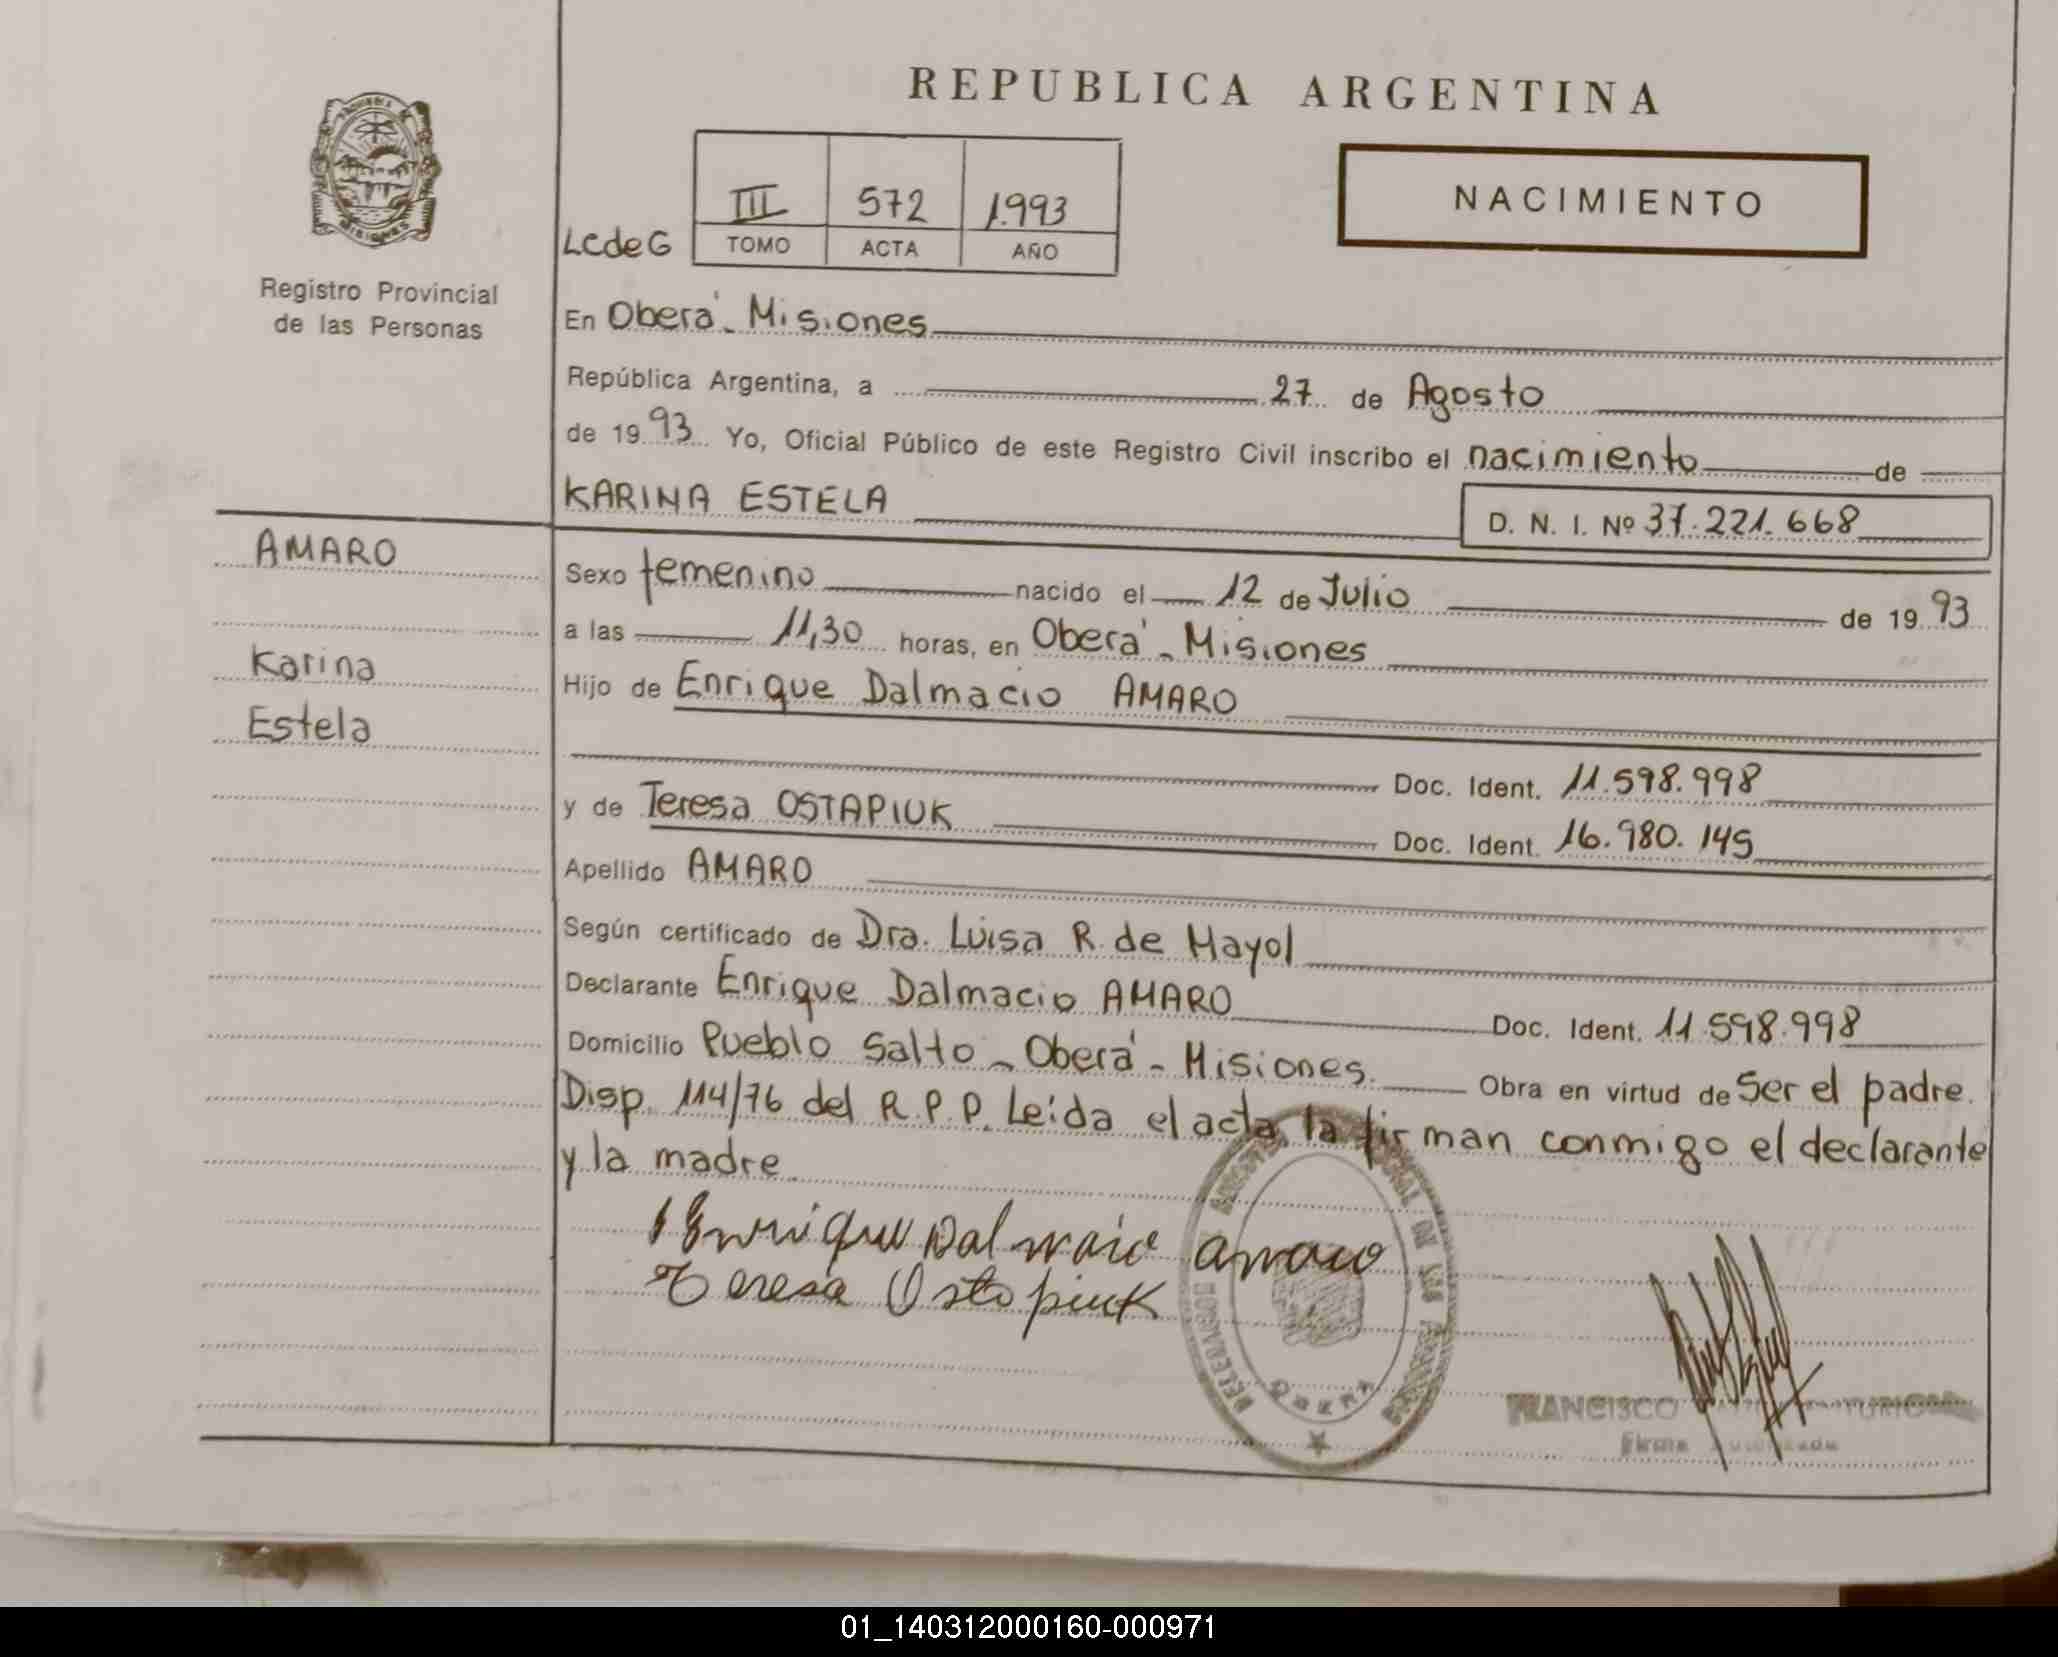 REPUBLICA ARGENTINA
NACIMIENTO
III 572 1.993
LCdeG TOMO ACTA AÑO
Registro Provincial
de las Personas
En Oberá - Misiones
República Argentina, a 27 de Agosto
de 1993 Yo, Oficial Público de este Registro Civil inscribo el nacimiento de
KARINA ESTELA
D. N. I. Nº 37.221.668
AMARO
Karina
Estela
Sexo femenino nacido el 12 de Julio de 1993
a las 11,30 horas, en Oberá - Misiones
Hijo de Enrique Dalmacio AMARO
Doc. Ident. 11.598.998
y de Teresa OSTAPIUK Doc. Ident. 16.980.145
Apellido AMARO
Según certificado de Dra. Luisa R. de Mayol
Declarante Enrique Dalmacio AMARO Doc. Ident. 11.598.998
Domicilio Pueblo Salto - Oberá - Misiones. Obra en virtud de Ser el padre.
Disp. 114/76 del R.P.P. Leída el acta, la firman conmigo el declarante
y la madre.
Enrique Dalmacio Amaro
Teresa Ostapiuk
OBERA
FRANCISCO
Firma Autorizada
01_140312000160-000971